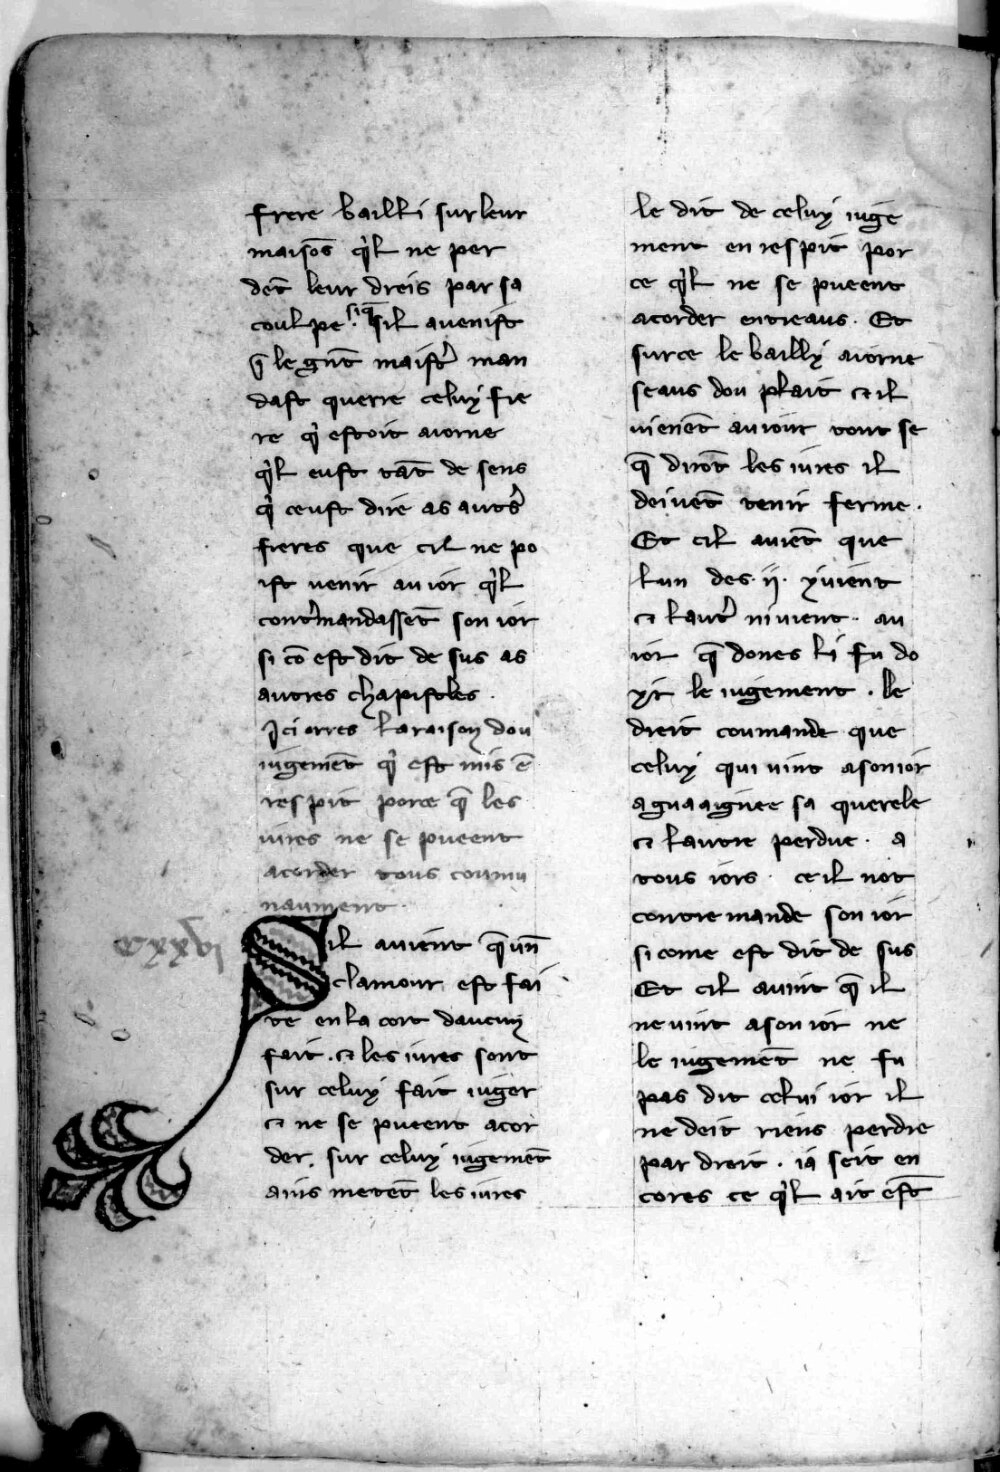 frere bailli sur leur
maisōs q'l ne per
dēt leur dreis par sa
coulpe. si q̄ sil auenist
q̄ le gn̄t maist' man
dast querre celuy fre
re q' estoit aiorne
q'l eust tāt de sens
q' ceust dire as aut's
freres que cil ne po
ist uenir au ior q'l
cont'mandassēt son ior
si cō est dit de sus as
autres chapistles.
Ici orres la raison dou
iugemēt q' est mis ē
respit porce q̄ les
iures ne se pueent
acorder tous coumu
naument.
Sil auient q̄ un̄
clamour est fai
te en la cort daucun
fait. ⁊ les iures sont
sur celuy fait iuger
⁊ ne se pueent acor
der. sur celuy iugemēt
ains metēt les iures
le dit de celuy iuge
ment en respit por
ce q'l ne se pueent
acorder entreaus. Et
sur ce le bailly aiorne
seaus dou plait ⁊ il
uienēt au iour tout se
q̄ dirōt les iures il
deiuēt tenir ferme.
Et cil auiēt que
lun des .ij. y uient
⁊ laut' ni uient. au
ior q̄ dones li fu do
yr le iugement. Le
dreit coumande que
celuy qui uint a son ior
a guaaignee sa querele
⁊ lautre perdue. a
tous iors. ce il not
contremande son ior
si come est dit de sus
Et cil auint q̄ il
ne uint a son ior ne
le iugemēt ne fu
pas dit celui ior il
ne deit riens perdre
par dreit. ia seit en
cores ce q'l ait est̄